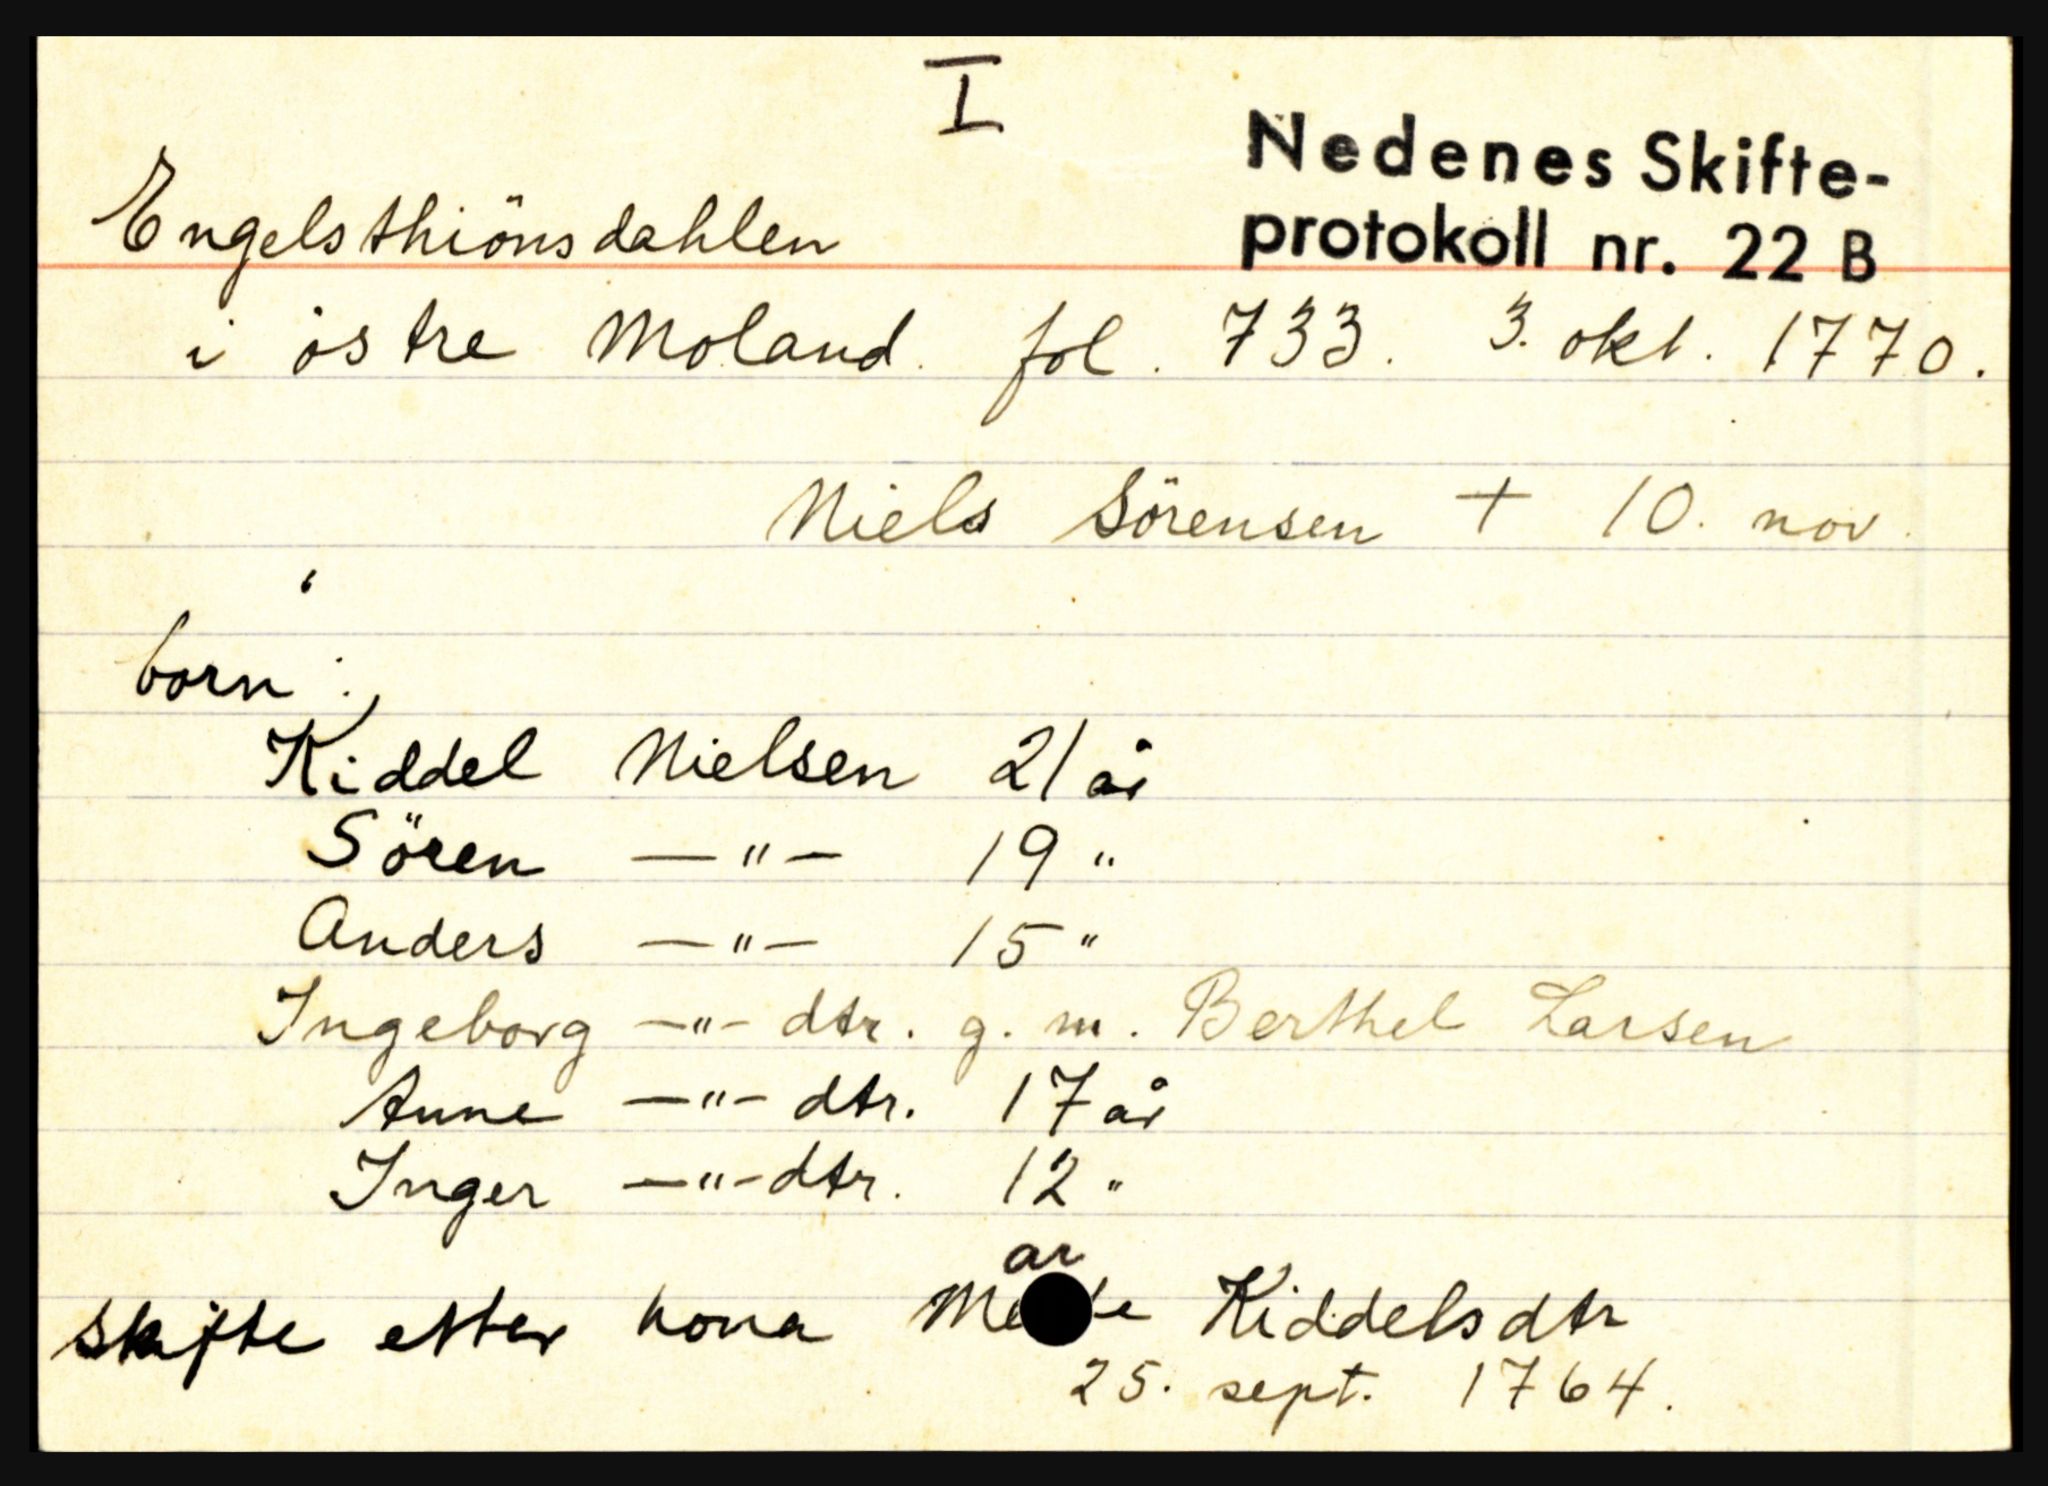 I
Nedenes Skifte-
protokoll nr. 22 B
Engelsthiönsdahlen
i östre Moland. fol. 733. 3. okt. 1770.
Niels Sörensen + 10. nov.
born:
Kiddel Nielsen 21 år
Sören —"— 19 "
Anders —"— 15 "
Ingeborg —"— dtr. g. m. Berthel Larsen
Anne —"— dtr. 17 år
Inger —"— dtr. 12 "
ar
skifte etter kona Kiddelsdtr
25. sept. 1764.